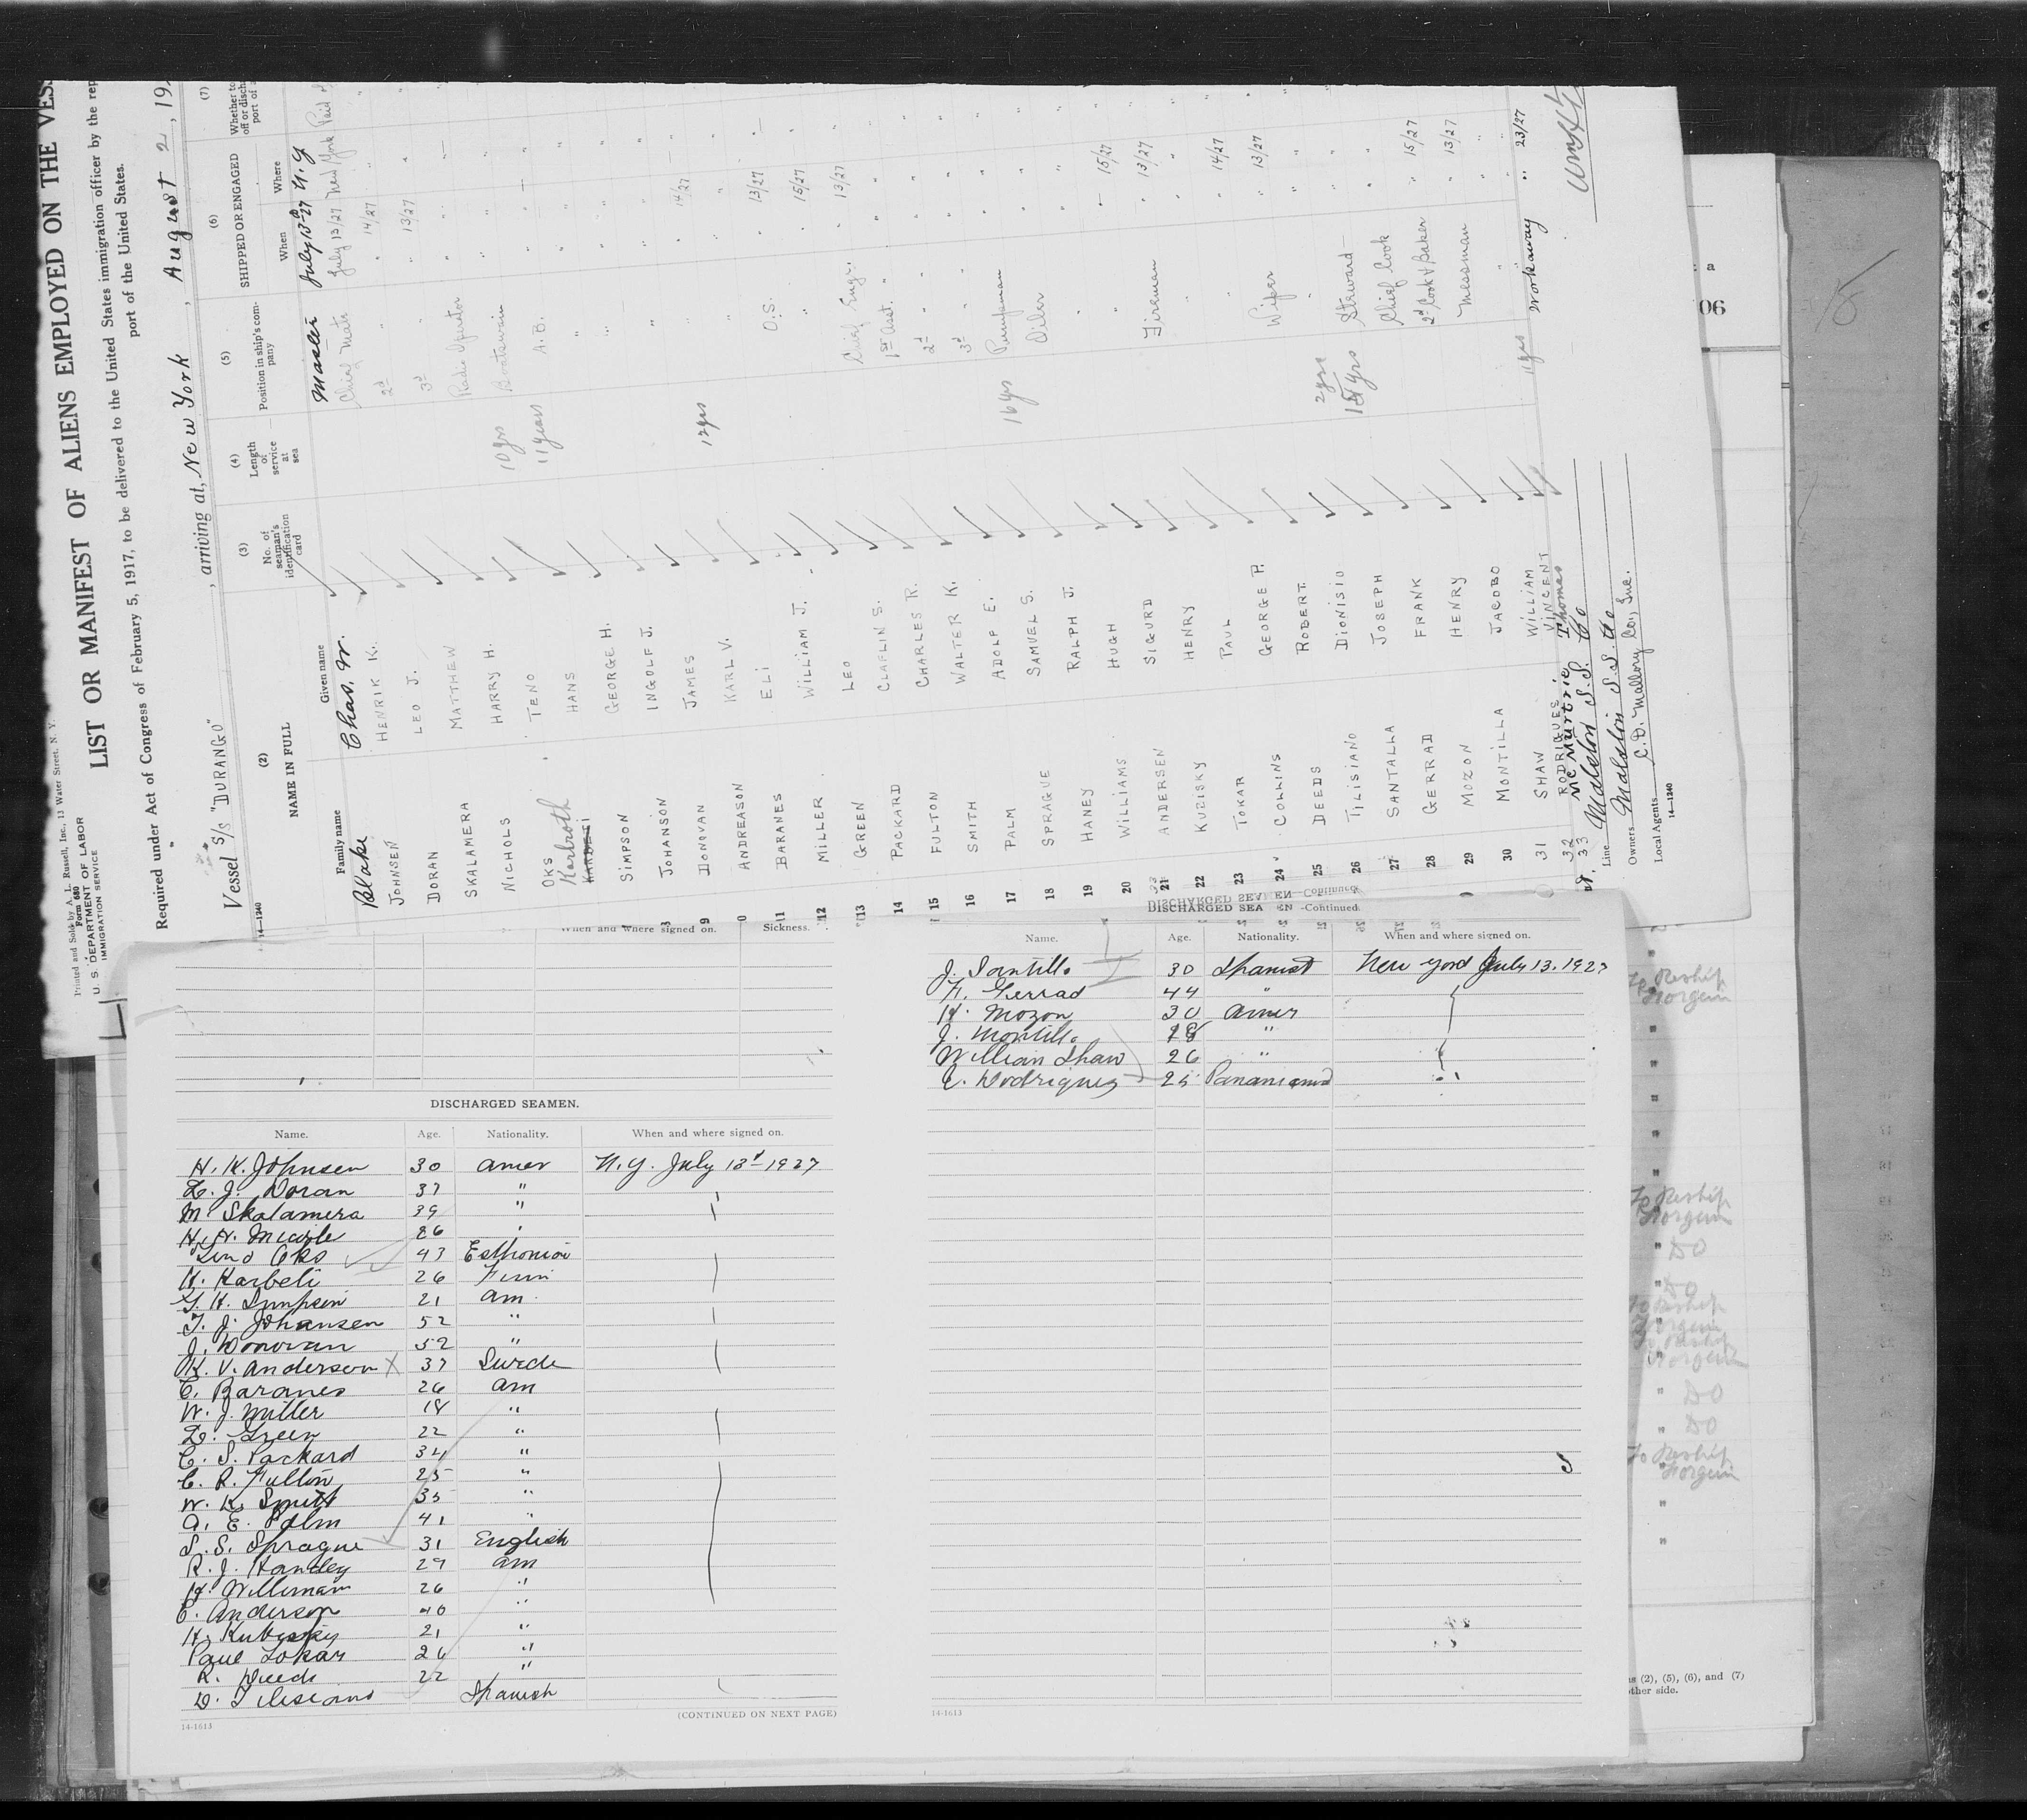 Printed and Sold by A. L. Russell, Inc., 13 Water Street, N. Y.
Form 680
U. S. DEPARTMENT OF LABOR
IMMIGRATION SERVICE
LIST OR MANIFEST OF ALIENS EMPLOYED ON THE VES
Required under Act of Congress of February 5, 1917, to be delivered to the United States immigration officer by the rep
port of the United States.
Vessel S/S "DURANGO", arriving at New York, August 2, 19
14-1240
(2) (3) (4) (5) (6) (7)
NAME IN FULL
No. of seaman's identification card
Length of service at sea
Position in ship's company
SHIPPED OR ENGAGED
Whether to
off or disch
port of
Family name Given name When Where
Blake Chas. W. Master July 13-27 N. Y
JOHNSEN HENRIK K. Chief Mate July 13/27 New York Paid
DORAN LEO J. 2d " 14/27 "
SKALAMERA MATTHEW 3d " " 13/27 "
NICHOLS HARRY H. Radio Operator " " "
OKS TENO 10 yrs Boatswain " " "
Karbroth KARBETI HANS 11 years A.B. " "
SIMPSON GEORGE H. " " "
8 JOHANSON INGOLF J. " " "
9 DONOVAN JAMES " " 14/27
0 ANDREASON KARL V. 12 yrs " "
11 BARANES ELI O.S. " 13/27
12 MILLER WILLIAM J. " " 15/27
13 GREEN LEO " 13/27
14 PACKARD CLAFLIN S. Chief Engr. " "
15 FULTON CHARLES R. 1st Asst. " " "
16 SMITH WALTER K. 2d " " "
17 PALM ADOLF E. 3d " " "
18 SPRAGUE SAMUEL S. 16 yrs Pumpman " "
19 HANEY RALPH J. Oiler " "
20 WILLIAMS HUGH " 15/27
21 ANDERSEN SIGURD " 13/27
22 KUZISKY HENRY Fireman " "
23 TOKAR PAUL " 14/27
24 COLLINS GEORGE P. " 13/27
25 DEEDS ROBERT Wiper " "
26 TILISIANO DIONISIO 2 yrs " "
27 SANTALLA JOSEPH 15 yrs Steward "
28 GERRAD FRANK Chief Cook " 15/27
29 MOZON HENRY 2d Cook & Baker " 13/27
30 MONTILLA JACOBO Messman "
31 SHAW WILLIAM " "
32 RODRIGUES VINCENT 11 yrs Workaway " 23/27
33 McMurtrie, Thomas
Line Malston S.S. Co
Owners Malston S.S. Co
Local Agents C. D. Mallory Co, Inc.
14-1240
When and where signed on. Sickness.
DISCHARGED SEAMEN.
Name. Age. Nationality. When and where signed on.
H. K. Johnsen 30 Amer N. Y. July 13d 1927
L. J. Doran 37 "
M. Skalamera 39 "
26 "
Teno Oks 43 Esthonian
H. Karbeti 26 Finn
G. H. Simpson 21 Am.
I. J. Johansen 52 "
J. Donovan 52 "
K. V. Anderson X 37 Swede
E. Baranes 26 Am
W. J. Miller 18 "
L. Green 22 "
C. S. Packard 34 "
C. R. Fulton 25 "
W. K. Smith 35 "
A. E. Palm 41 "
S. S. Sprague 31 English
R. J. Handley 29 Am
H. William 26 "
Anderson 40 "
H. Kubisky 21 "
Paul Tokar 26 "
R. Deeds 22 "
D. Tilisiano Spanish
14-1613 (CONTINUED ON NEXT PAGE)
DISCHARGED SEAMEN -Continued.
Name. Age. Nationality. When and where signed on.
J. Santilla 30 Spanish New York July 13. 1927
F. Gerrad 44 "
H. Mozon 30 Amer
J. Montilla 18 "
William Shaw 26 "
V. Rodrigues 25 Panamanian
14-1613
06
To Reship Foreign
To Reship Foreign
" DO
" DO
To Reship Foreign
To Reship Foreign
" DO
" DO
To Reship Foreign
ns (2), (5), (6), and (7)
other side.